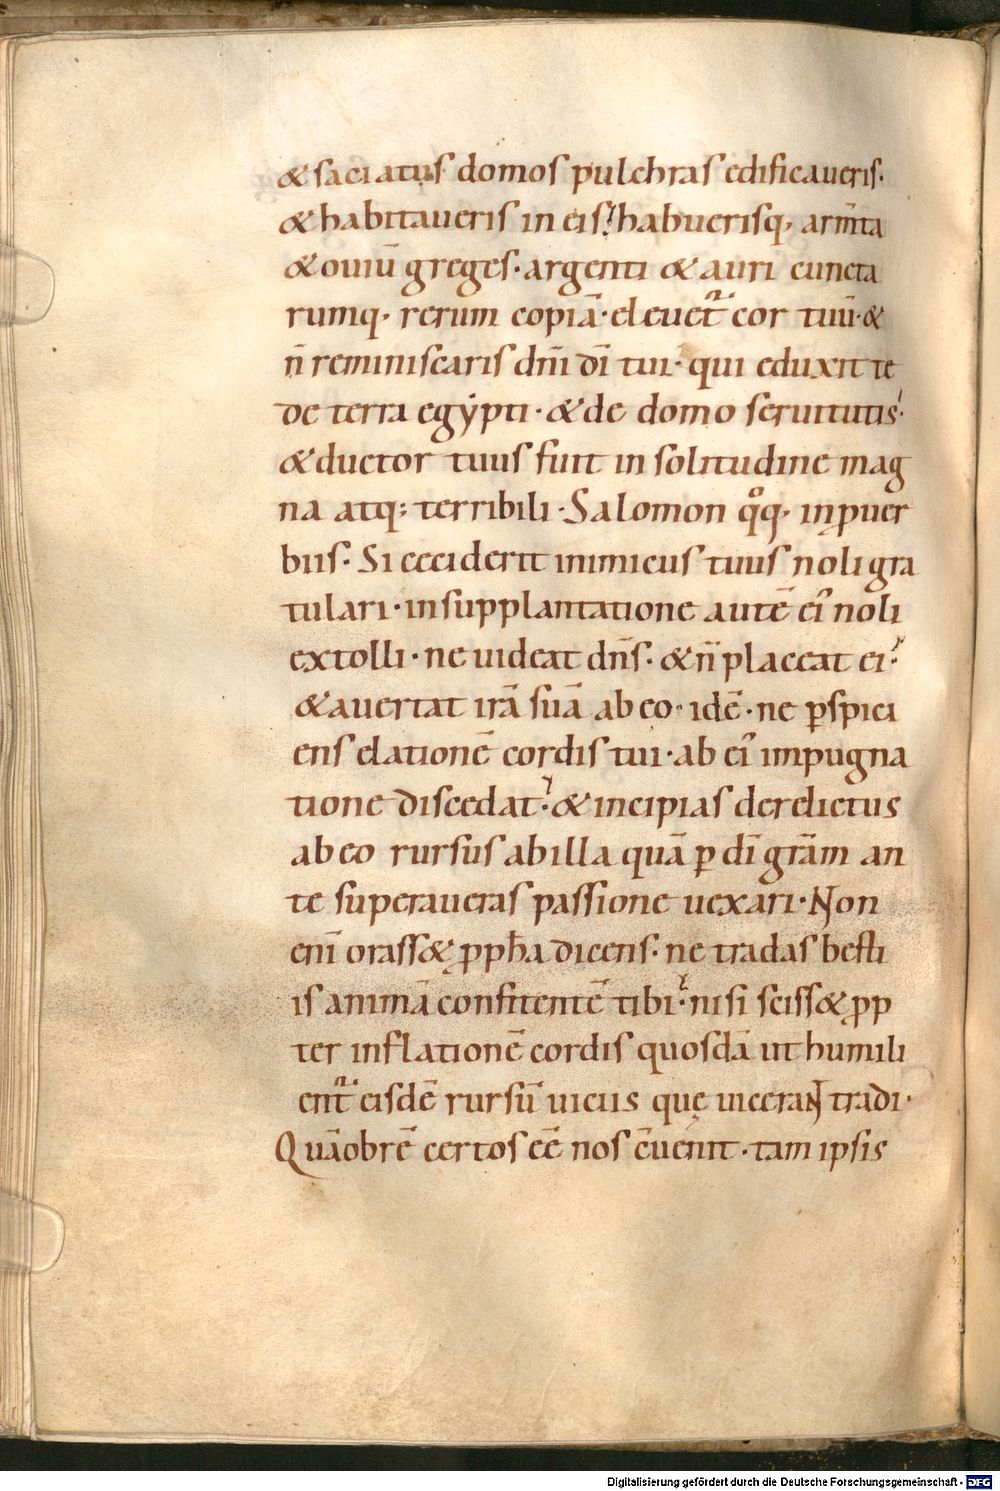 & saciatus domos pulchras edificaueris.
& habitaueris in eis? habuerisq; arm̄ta
& ouiū greges. argenti & auri cuncta
rumq; rerum copiā. eleuet᷑ cor tuū. &
n̄ reminiscaris dn̄i dī tui. qui eduxit te
de terra egẏpti. & de domo seruitutis.
& ductor tuus fuit in solitudine mag
na atq; terribili. Salomon qͦq; in ꝓuer
biis. Si ceciderit inimicus tuus noli gra
tulari. in supplantatione autē ei᷒ noli
extolli. ne uideat dn̄s. & n̄ placeat ei.
& auertat irā suā ab eo. idē. ne ꝑspici
ens elationē cordis tui. ab ei᷒ impugna
tione discedat. & incipias derelictus
ab eo rursus ab illa quā ꝑ dī grām an
te superaueras passione uexari. Non
enī orass& ꝓph̄a dicens. ne tradas besti
is animā confitentē tibi. nisi sciss& ꝓp
ter inflationē cordis quosdā ut humili
ent᷑ eisdē rursū uiciis quę uicerant tradi.
Quāobrē certos eē nos cōuenit. tam ipsis
Digitalisierung gefördert durch die Deutsche Forschungsgemeinschaft - DFG